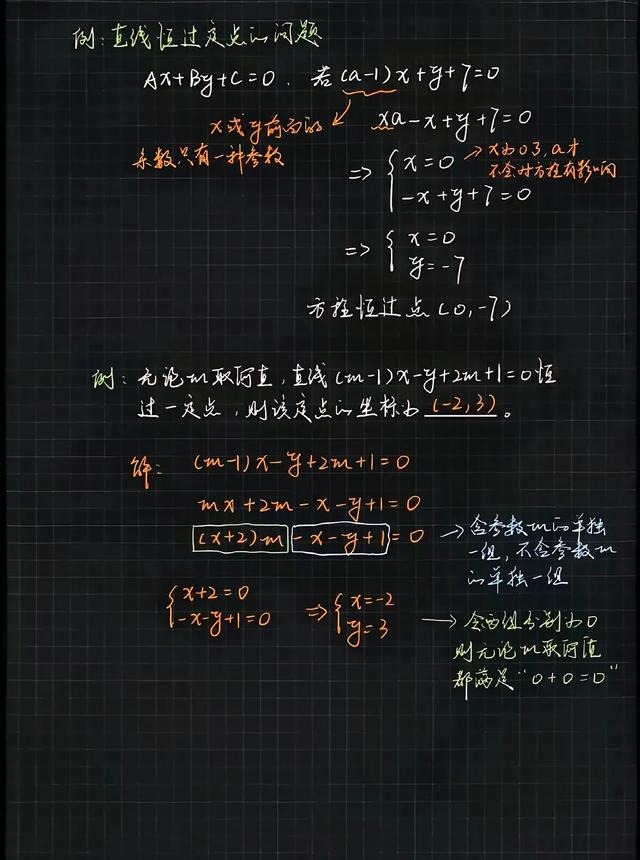 例:直线恒过定点的问题
Ax+By+C=0. 若(a-1)x+y+7=0
x或y前面的
系数只有一种参数
xa-x+y+7=0
=> { x=0 → x为0了,a才
不会对方程有影响
-x+y+7=0
=> { x=0
y=-7
方程恒过点(0,-7)
例:无论m取何值,直线(m-1)x-y+2m+1=0恒
过一定点,则该定点的坐标为(-2,3)。
解: (m-1)x-y+2m+1=0
mx+2m-x-y+1=0
(x+2)m-x-y+1=0 → 含参数m的单独
一组,不含参数m
的单独一组
{ x+2=0 => { x=-2
-x-y+1=0 y=3
→ 令两组分别为0
则无论m取何值
都满足“0+0=0”